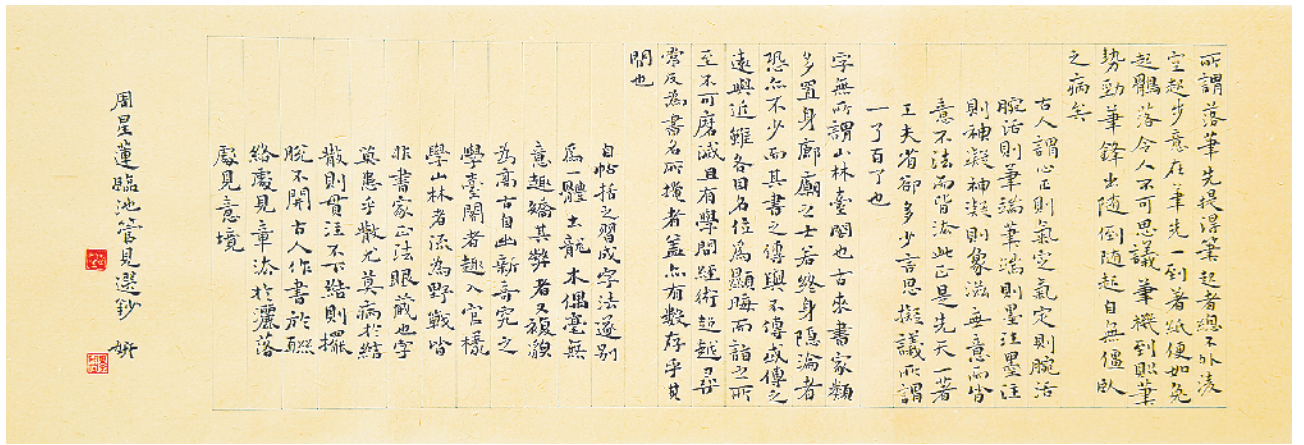 所謂落筆先提得筆起者總不外凌
空起步意在筆先一到著紙便如兔
起鶻落令人不可思議筆機到則筆
勢勁筆鋒出隨倒隨起自無僵臥
之病矣
古人謂心正則氣定氣定則腕活
腕活則筆端筆端則墨注墨注
則神凝神凝則象滋無意而皆
意不法而皆法此正是先天一著
工夫省卻多少言思擬議所謂
一了百了也
字無所謂山林臺閣也古來書家類
多置身廊廟之士若終身隱淪者
恐亦不少而其書之傳與不傳或傳之
遠與近雖各因名位為顯晦而詣之所
至不可磨滅且有學問經術超越尋
常反為書名所掩者蓋亦有數存乎其
間也
自帖括之習成字法遂別
為一體土龍木偶毫無
意趣矯其弊者又複貌
為高古自出新奇究之
學臺閣者趨入官樣
學山林者流為野戰皆
非書家正法眼藏也字
莫患乎散尤莫病於結
散則貫注不下結則擺
脫不開古人作書於聯
絡處見章法於灑落
處見意境
周星蓮臨池管見選鈔 妍